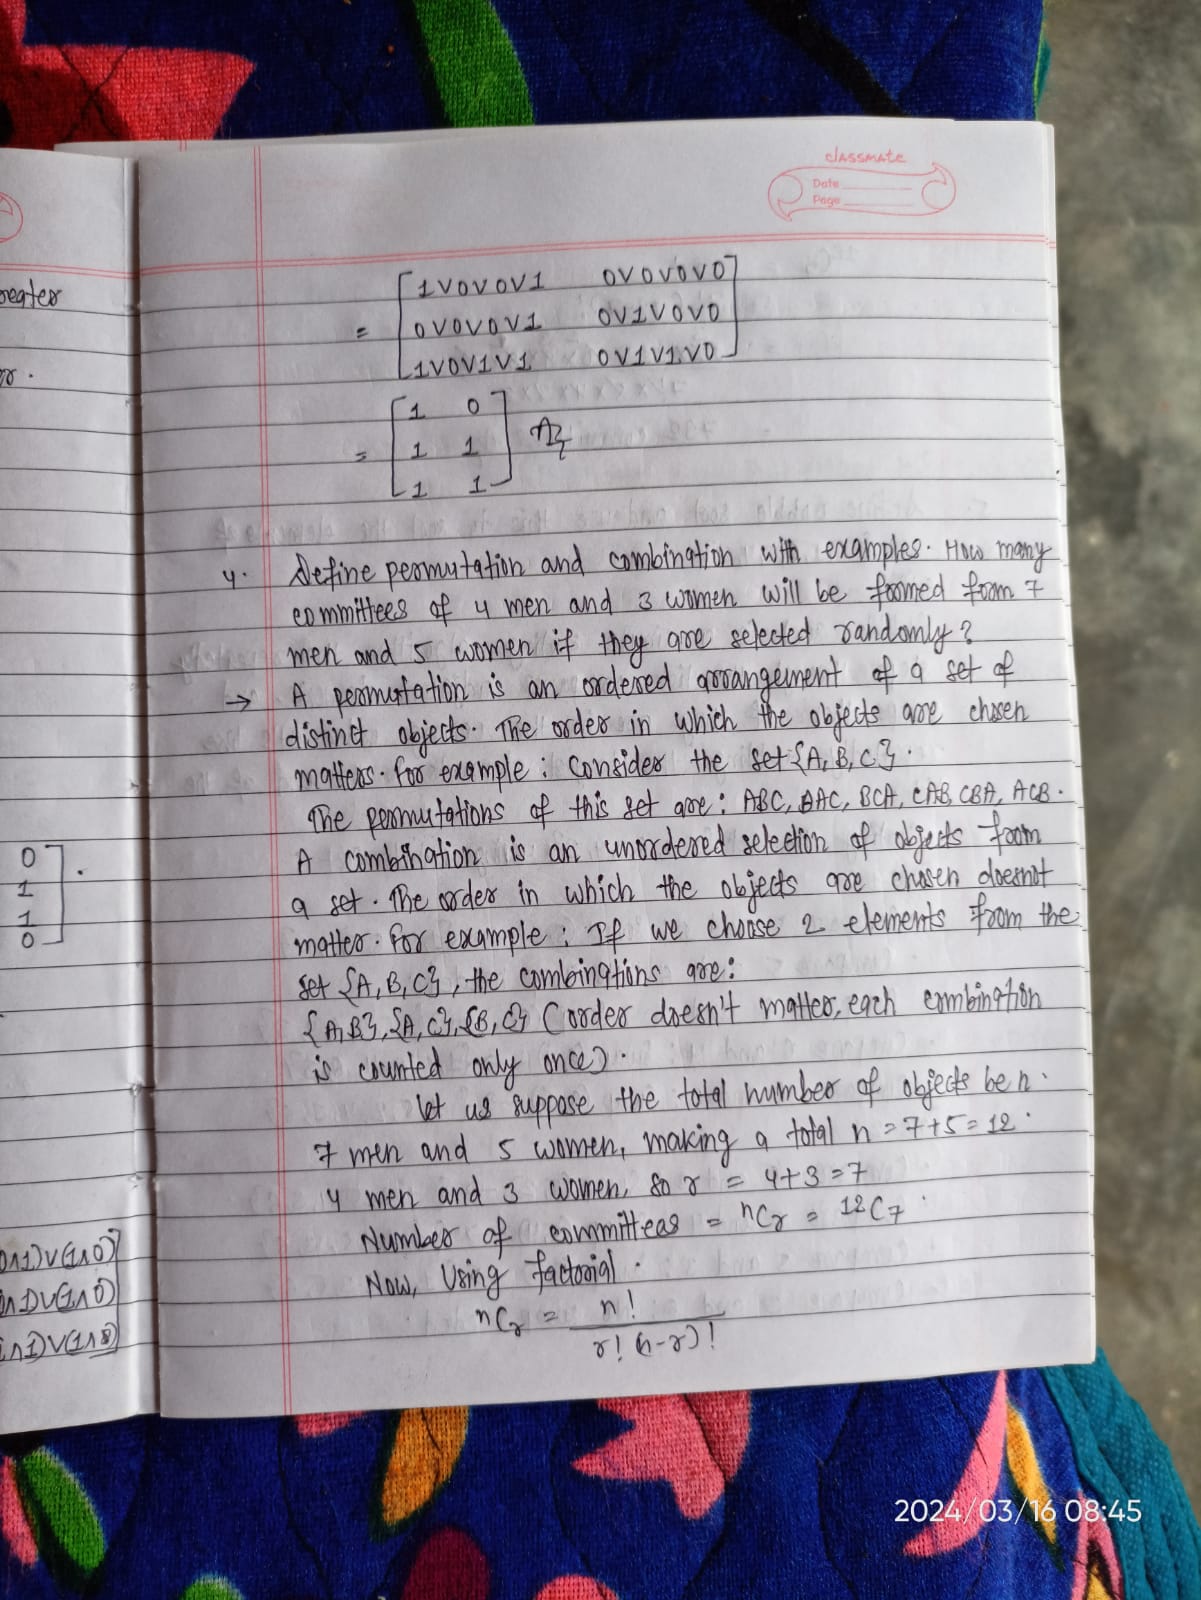 classmate
Date
Page
reater
or.
= [1∨0∨0∨1 0∨0∨0∨0
0∨0∨0∨1 0∨1∨0∨0
1∨0∨1∨1 0∨1∨1∨0]
= [1 0
1 1
1 1] Ans
4. Define permutation and combination with examples. How many
committees of 4 men and 3 women will be formed from 7
men and 5 women if they are selected randomly?
→ A permutation is an ordered arrangement of a set of
distinct objects. The order in which the objects are chosen
matters. For example: Consider the set {A, B, C}.
The permutations of this set are: ABC, BAC, BCA, CAB, CBA, ACB.
A combination is an unordered selection of objects from
a set. The order in which the objects are chosen doesnot
matter. For example: If we choose 2 elements from the
set {A, B, C}, the combinations are:
{A,B}, {A, C}, {B, C} (order doesn't matter, each combination
is counted only once).
let us suppose the total number of objects be n.
7 men and 5 women, making a total n = 7+5 = 12.
4 men and 3 women, so r = 4+3 = 7
Number of committeas = nCr = 12C7.
Now, Using factorial.
nCr = n!
r! (n-r)!
0
1
1
0].
0∧1)∨(1∧0)]
∧1)∨(1∧0)
∧1)∨(1∧0)
2024/03/16 08:45